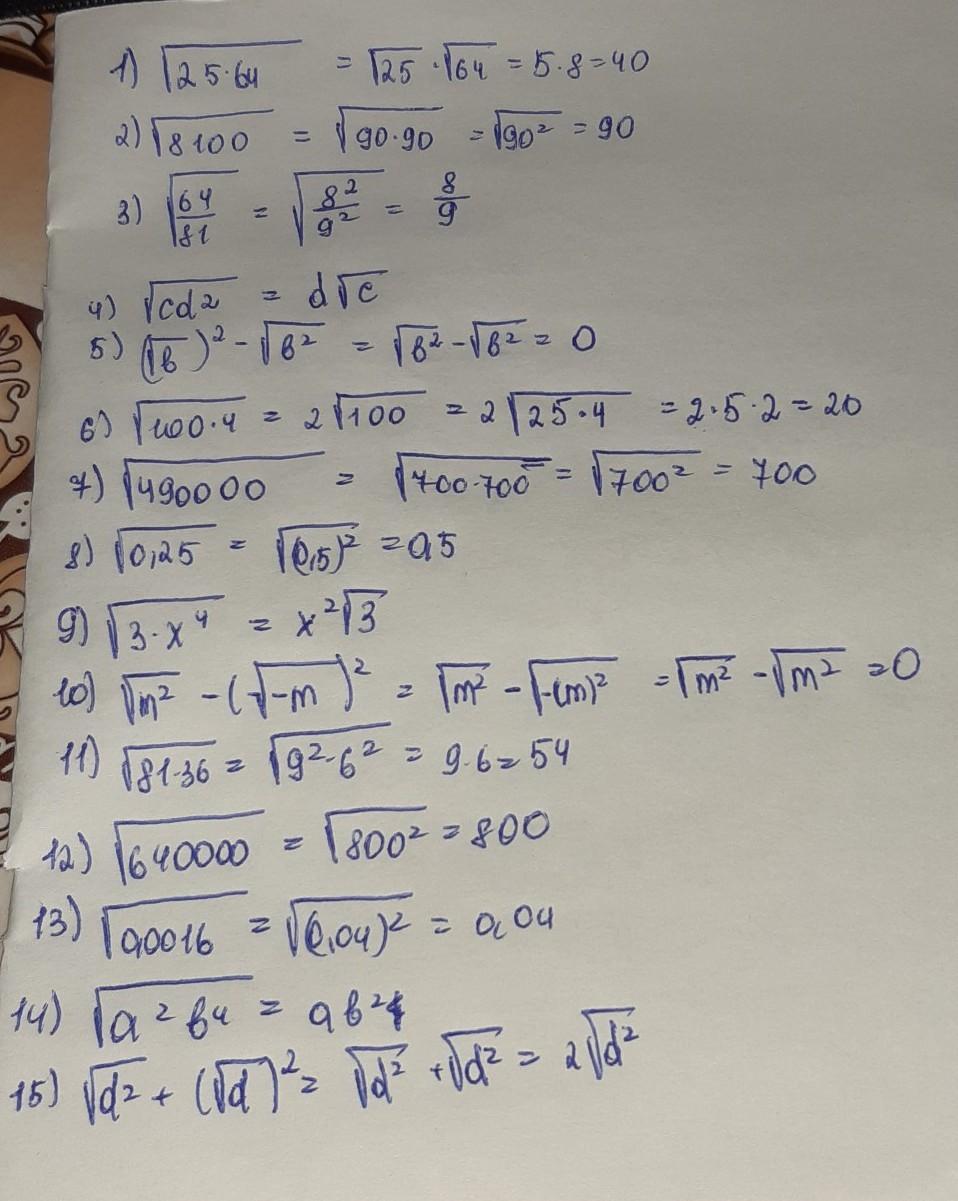 1) √25·64 = √25 · √64 = 5·8 = 40
2) √8100 = √90·90 = √90² = 90
3) √64/81 = √8²/9² = 8/9
4) √cd2 = d√c
5) (√b)² - √b² = √b² - √b² = 0
6) √100·4 = 2√100 = 2√25·4 = 2·5·2 = 20
7) √490000 = √700·700 = √700² = 700
8) √0,25 = √(0,5)² = 0,5
9) √3·x⁴ = x²√3
10) √m² - (√-m)² = √m² - √-(m)² = √m² - √m² = 0
11) √81·36 = √9²·6² = 9·6 = 54
12) √640000 = √800² = 800
13) √0,0016 = √(0,04)² = 0,04
14) √a²b⁴ = ab²
15) √d² + (√d)² = √d² + √d² = 2√d²